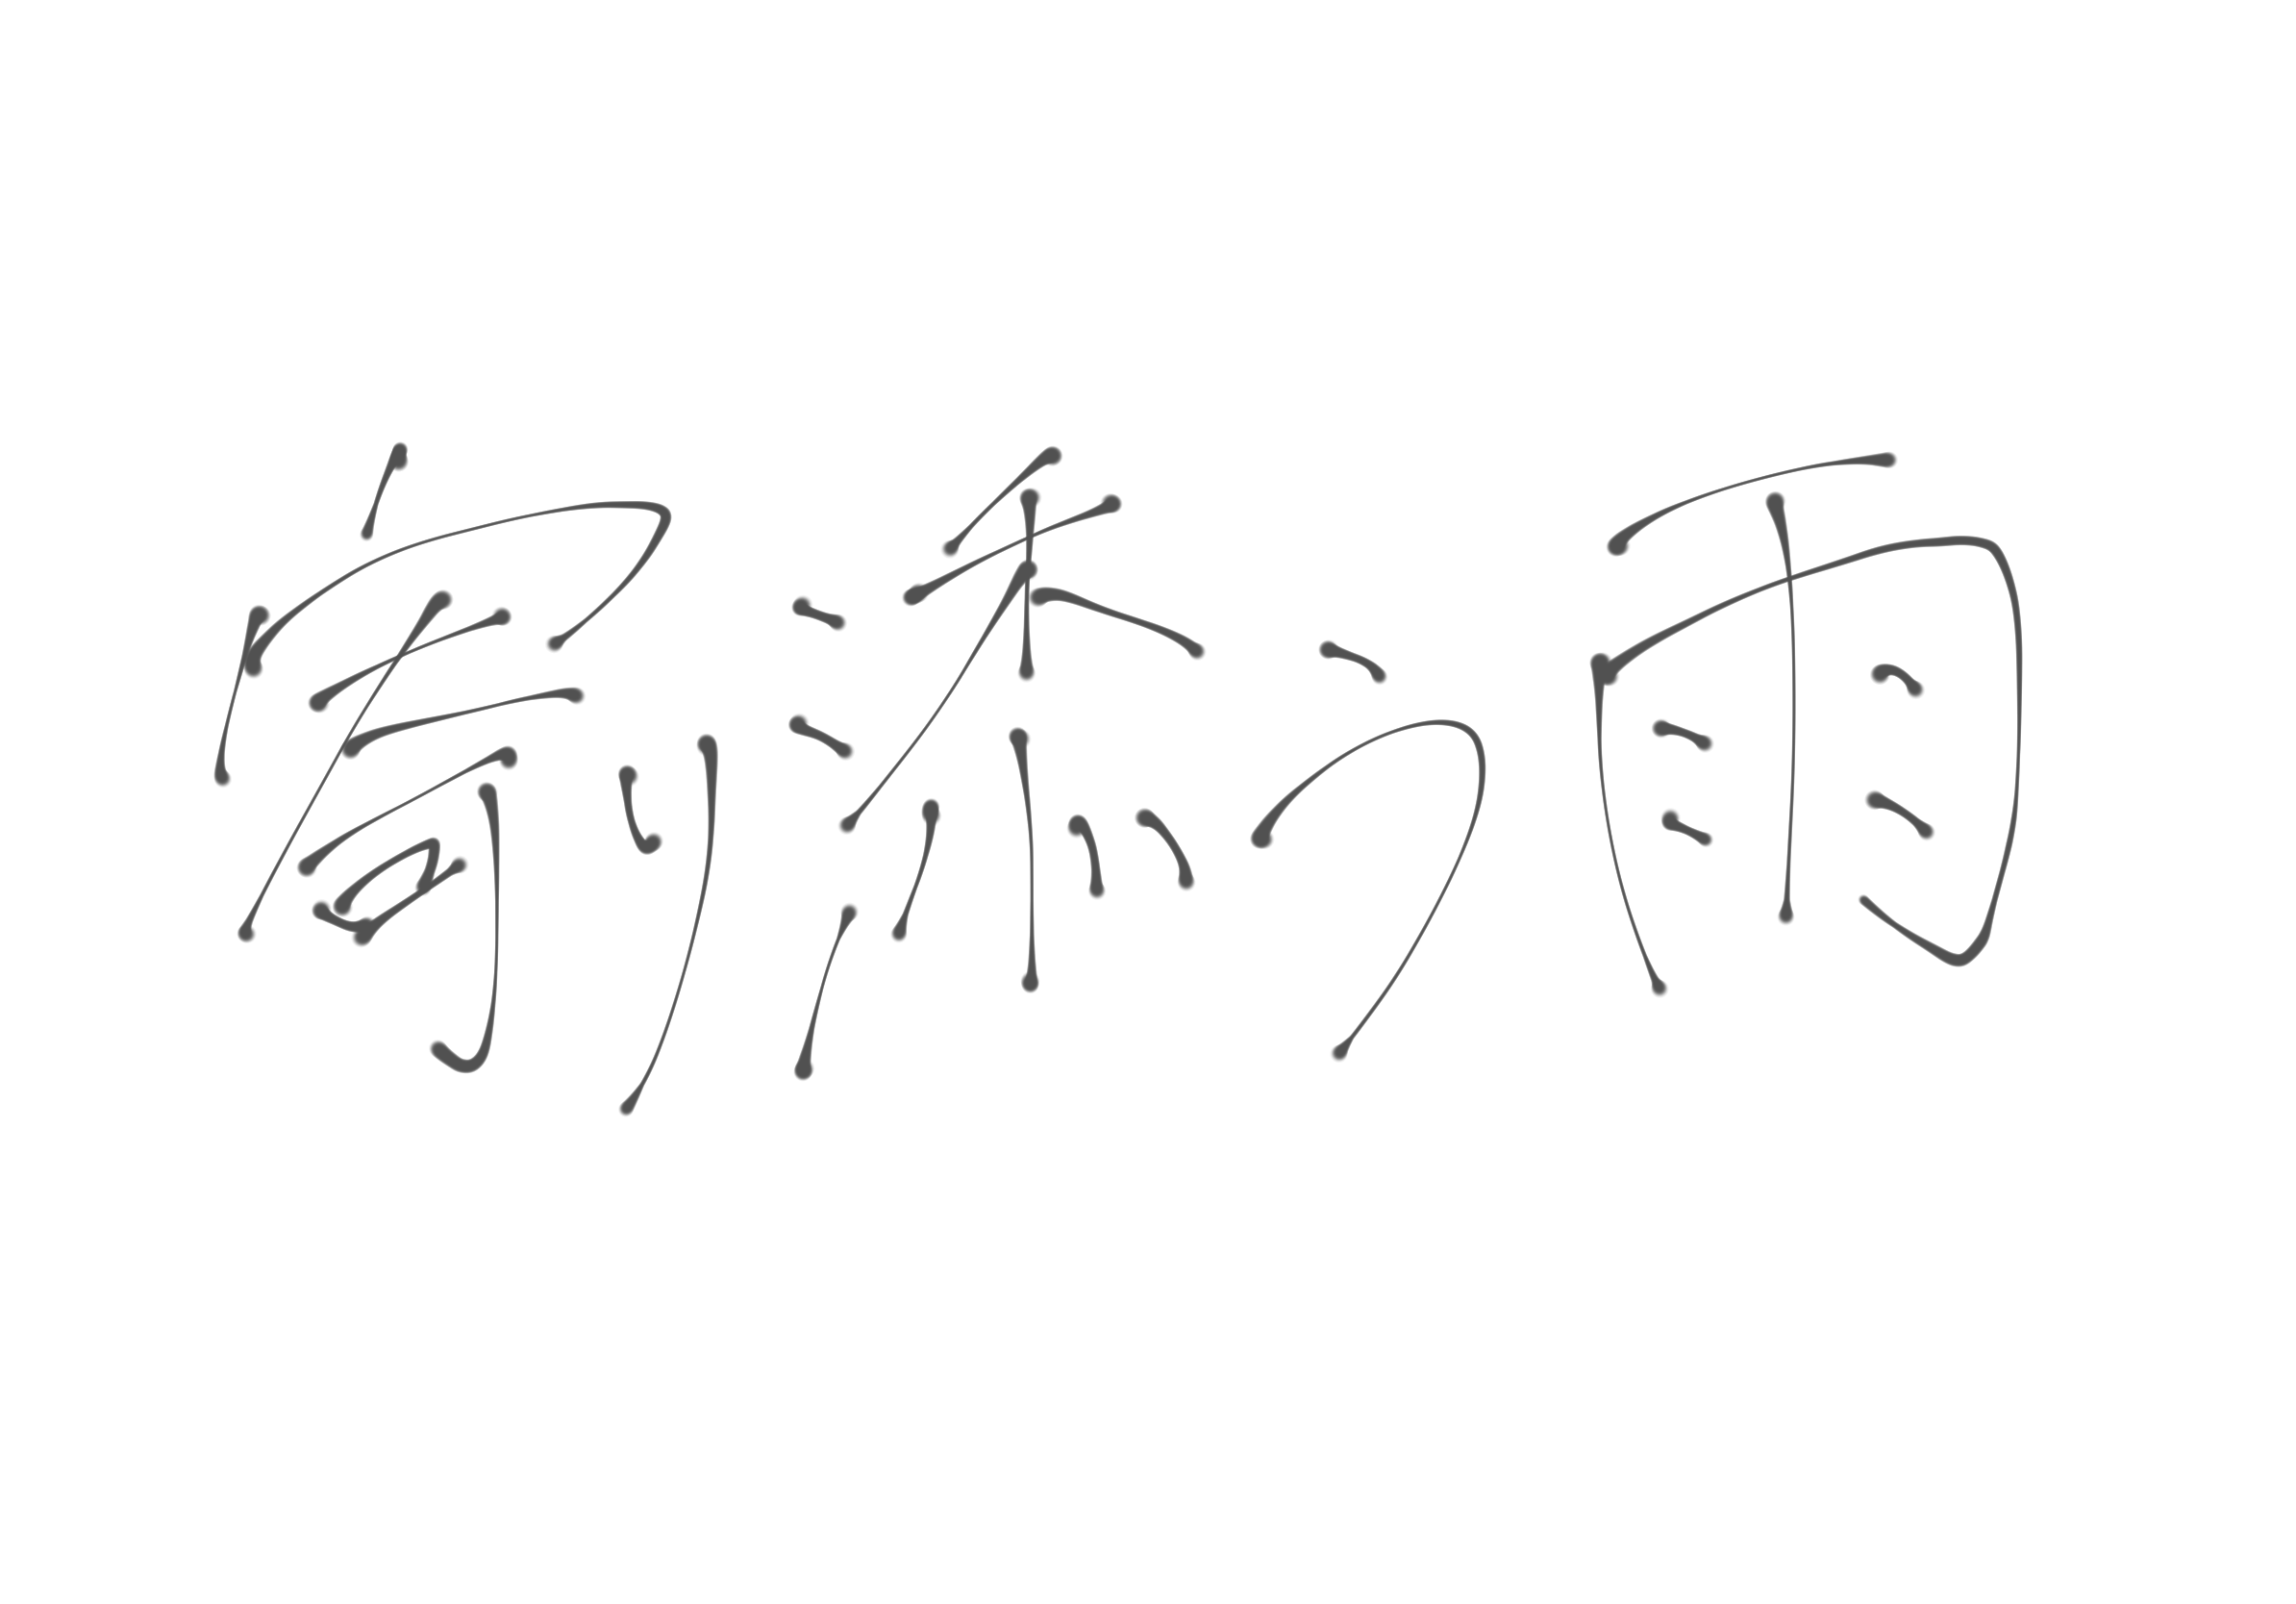 寄り添う雨